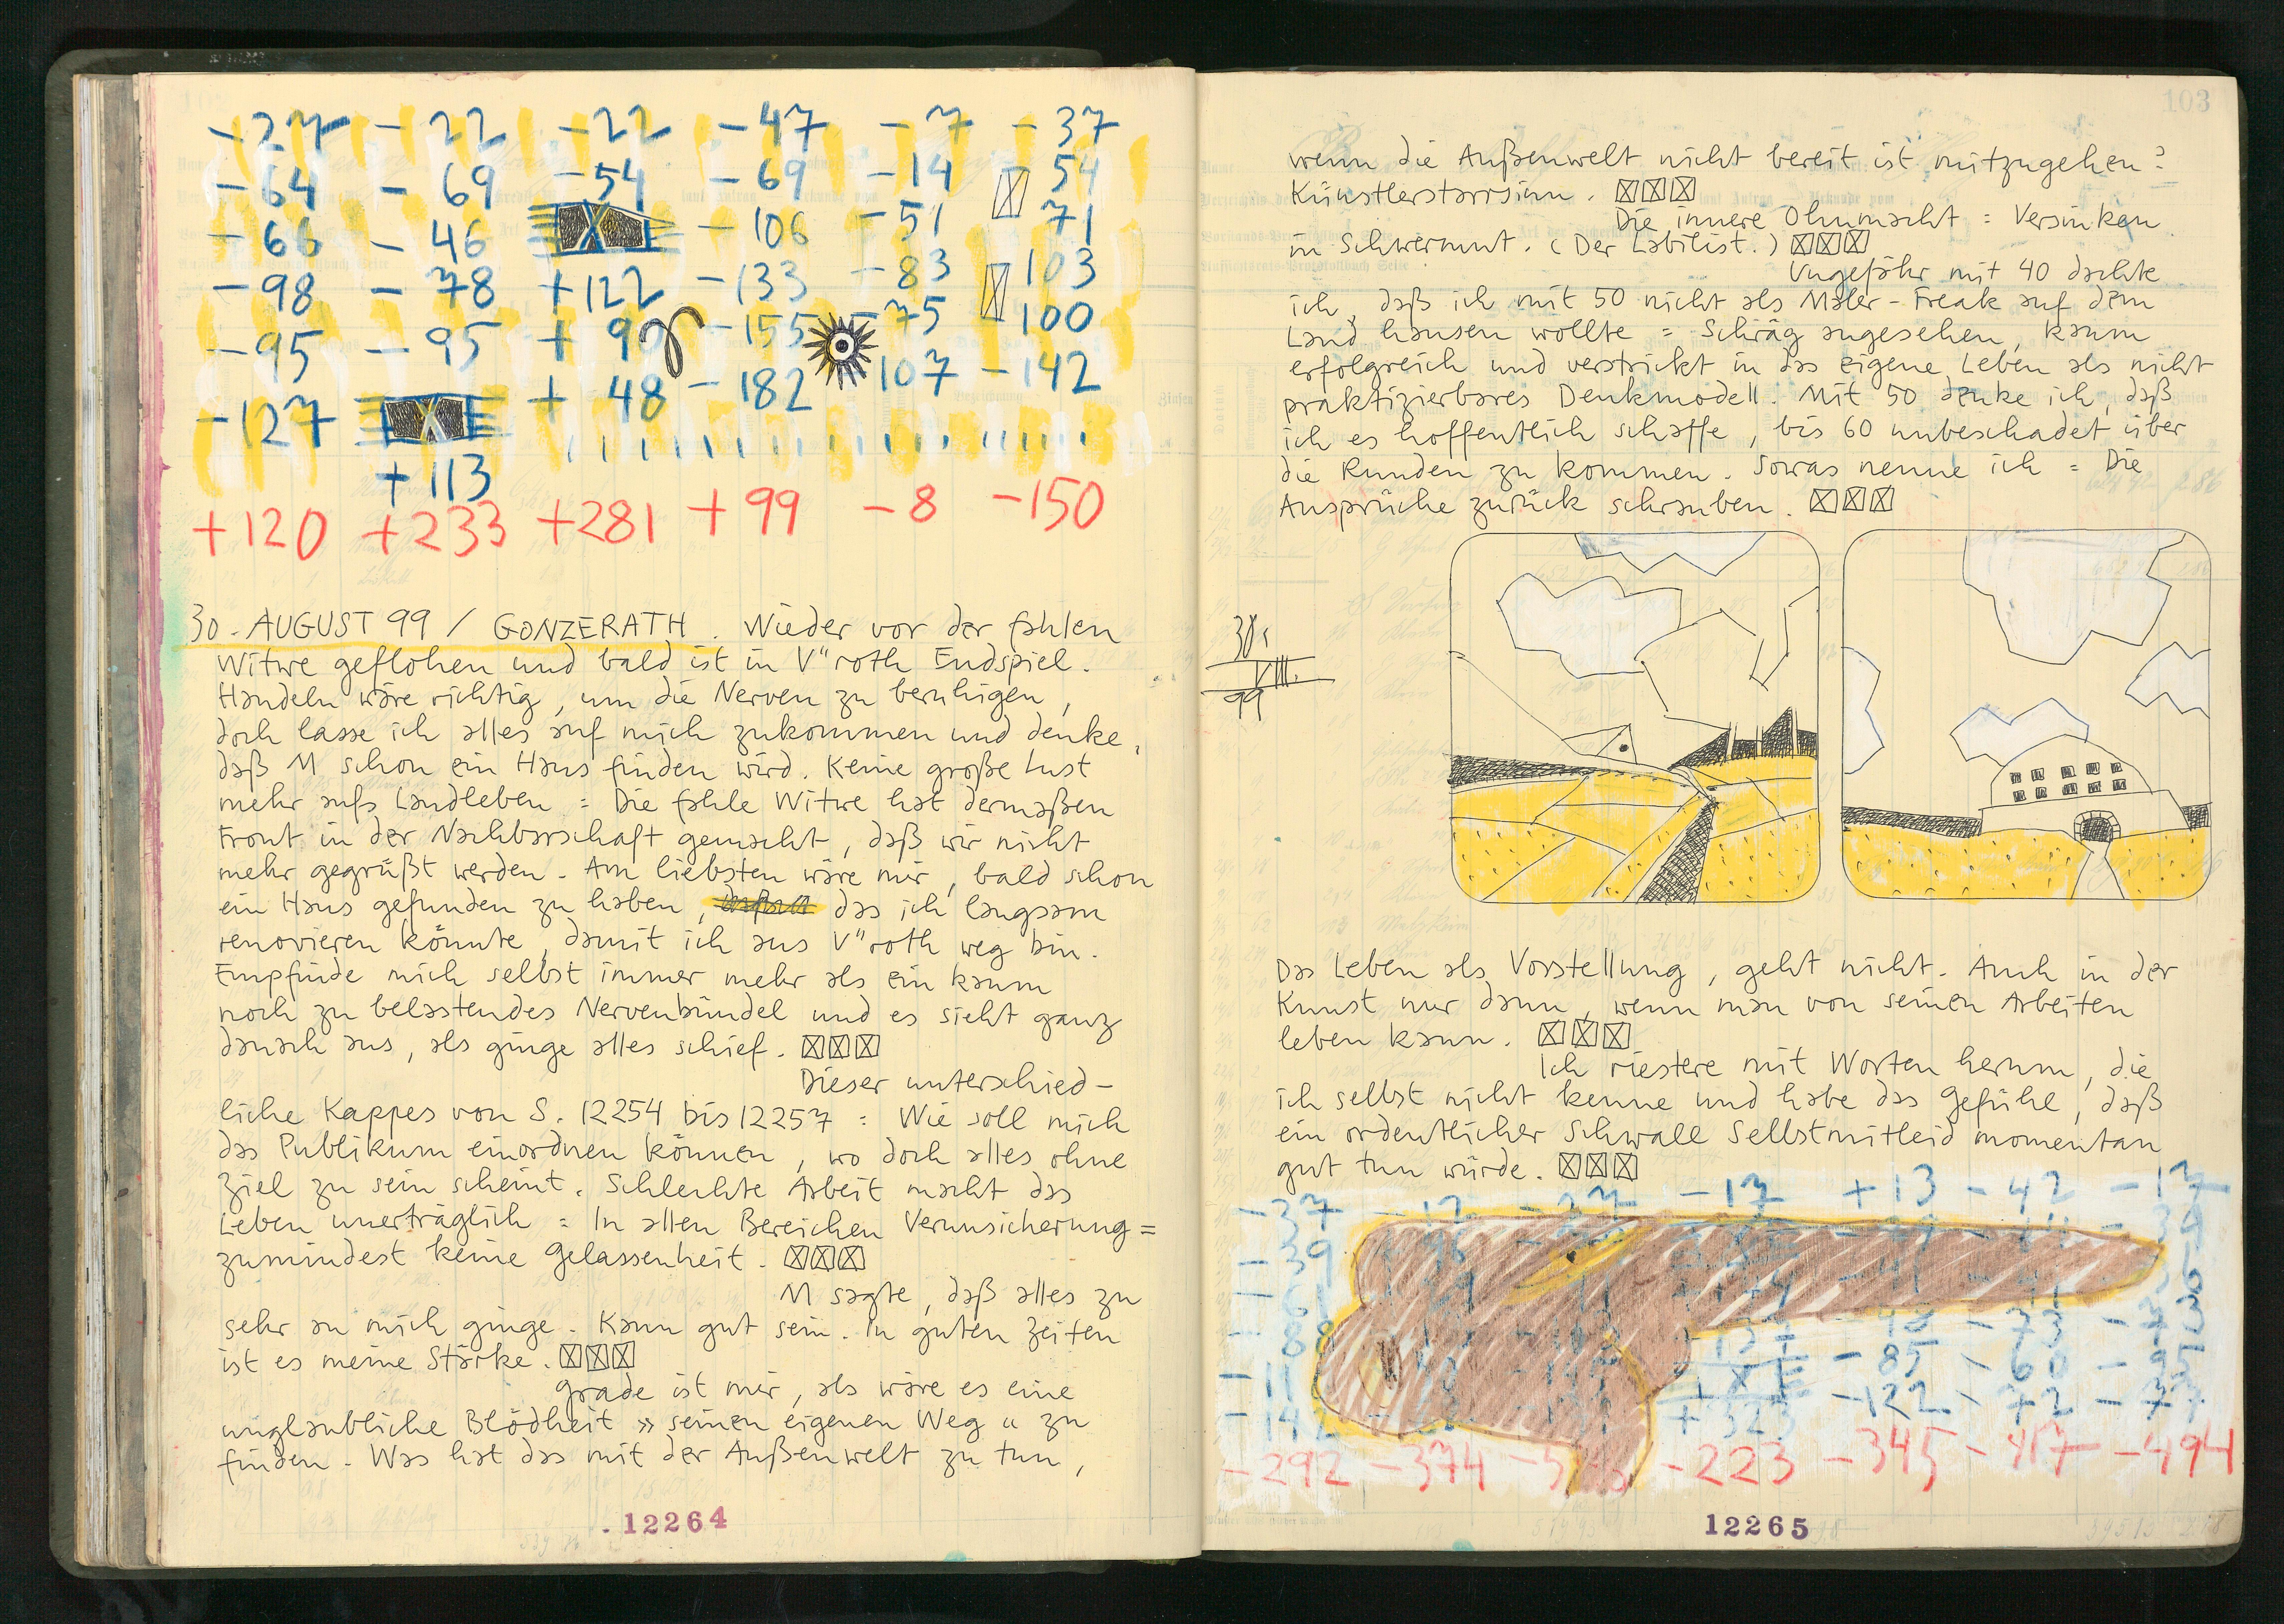 -27 -22 -22 -47 -7 -37
-64 -69 -54 -69 -14 54
-66 -46 -106 -51 71
-98 -78 +122 -133 -83 103
-95 -95 +90 -155 -75 -100
-127 +48 -182 107 -142
+113
+120 +233 +281 +99 -8 -150
30. AUGUST 99 / GONZERATH. Wieder vor der fahlen
Witwe geflohen und bald ist in V"roth Endspiel.
Handeln wäre richtig, um die Nerven zu beruhigen,
doch lasse ich alles auf mich zukommen und denke,
daß M schon ein Haus finden wird. Keine große Lust
mehr aufs Landleben = Die fahle Witwe hat dermaßen
Front in der Nachbarschaft gemacht, daß wir nicht
mehr gegrüßt werden. Am liebsten wäre mir, bald schon
ein Haus gefunden zu haben, das ich langsam
renovieren könnte, damit ich aus V"roth weg bin.
Empfinde mich selbst immer mehr als ein kaum
noch zu belastendes Nervenbündel und es sieht ganz
danach aus, als ginge alles schief.
Dieser unterschied-
liche Kappes von S. 12254 bis 12257 = Wie soll mich
das Publikum einordnen können, wo doch alles ohne
Ziel zu sein scheint. Schlechte Arbeit macht das
Leben unerträglich = In allen Bereichen Verunsicherung =
zumindest keine Gelassenheit.
M sagte, daß alles zu
sehr an mich ginge. Kann gut sein. In guten Zeiten
ist es meine Stärke.
Grade ist mir, als wäre es eine
unglaubliche Blödheit » seinen eigenen Weg « zu
finden. Was hat das mit der Außenwelt zu tun,
12264
103
wenn die Außenwelt nicht bereit ist mitzugehen?
Künstlerstarrsinn.
Die innere Ohnmacht = Versinken
in Schwermut. (Der Labilist.)
Ungefähr mit 40 dachte
ich, daß ich mit 50 nicht als Maler-Freak auf dem
Land hausen wollte = Schräg angesehen, kaum
erfolgreich und verstrickt in das eigene Leben als nicht
praktizierbares Denkmodell. Mit 50 denke ich, daß
ich es hoffentlich schaffe, bis 60 unbeschadet über
die Runden zu kommen. Sowas nenne ich = Die
Ansprüche zurück schrauben.
30.
VIII.
99
Das Leben als Vorstellung, geht nicht. Auch in der
Kunst nur dann, wenn man von seinen Arbeiten
leben kann.
Ich riestere mit Worten herum, die
ich selbst nicht kenne und habe das Gefühl, daß
ein ordentlicher Schwall Selbstmitleid momentan
gut tun würde.
-37 -12 -27 -17 +13 -42 -17
-39
-73
-85 -60 -95
-142 -122 -72
-292 -374 -223 -345 -417 -494
12265